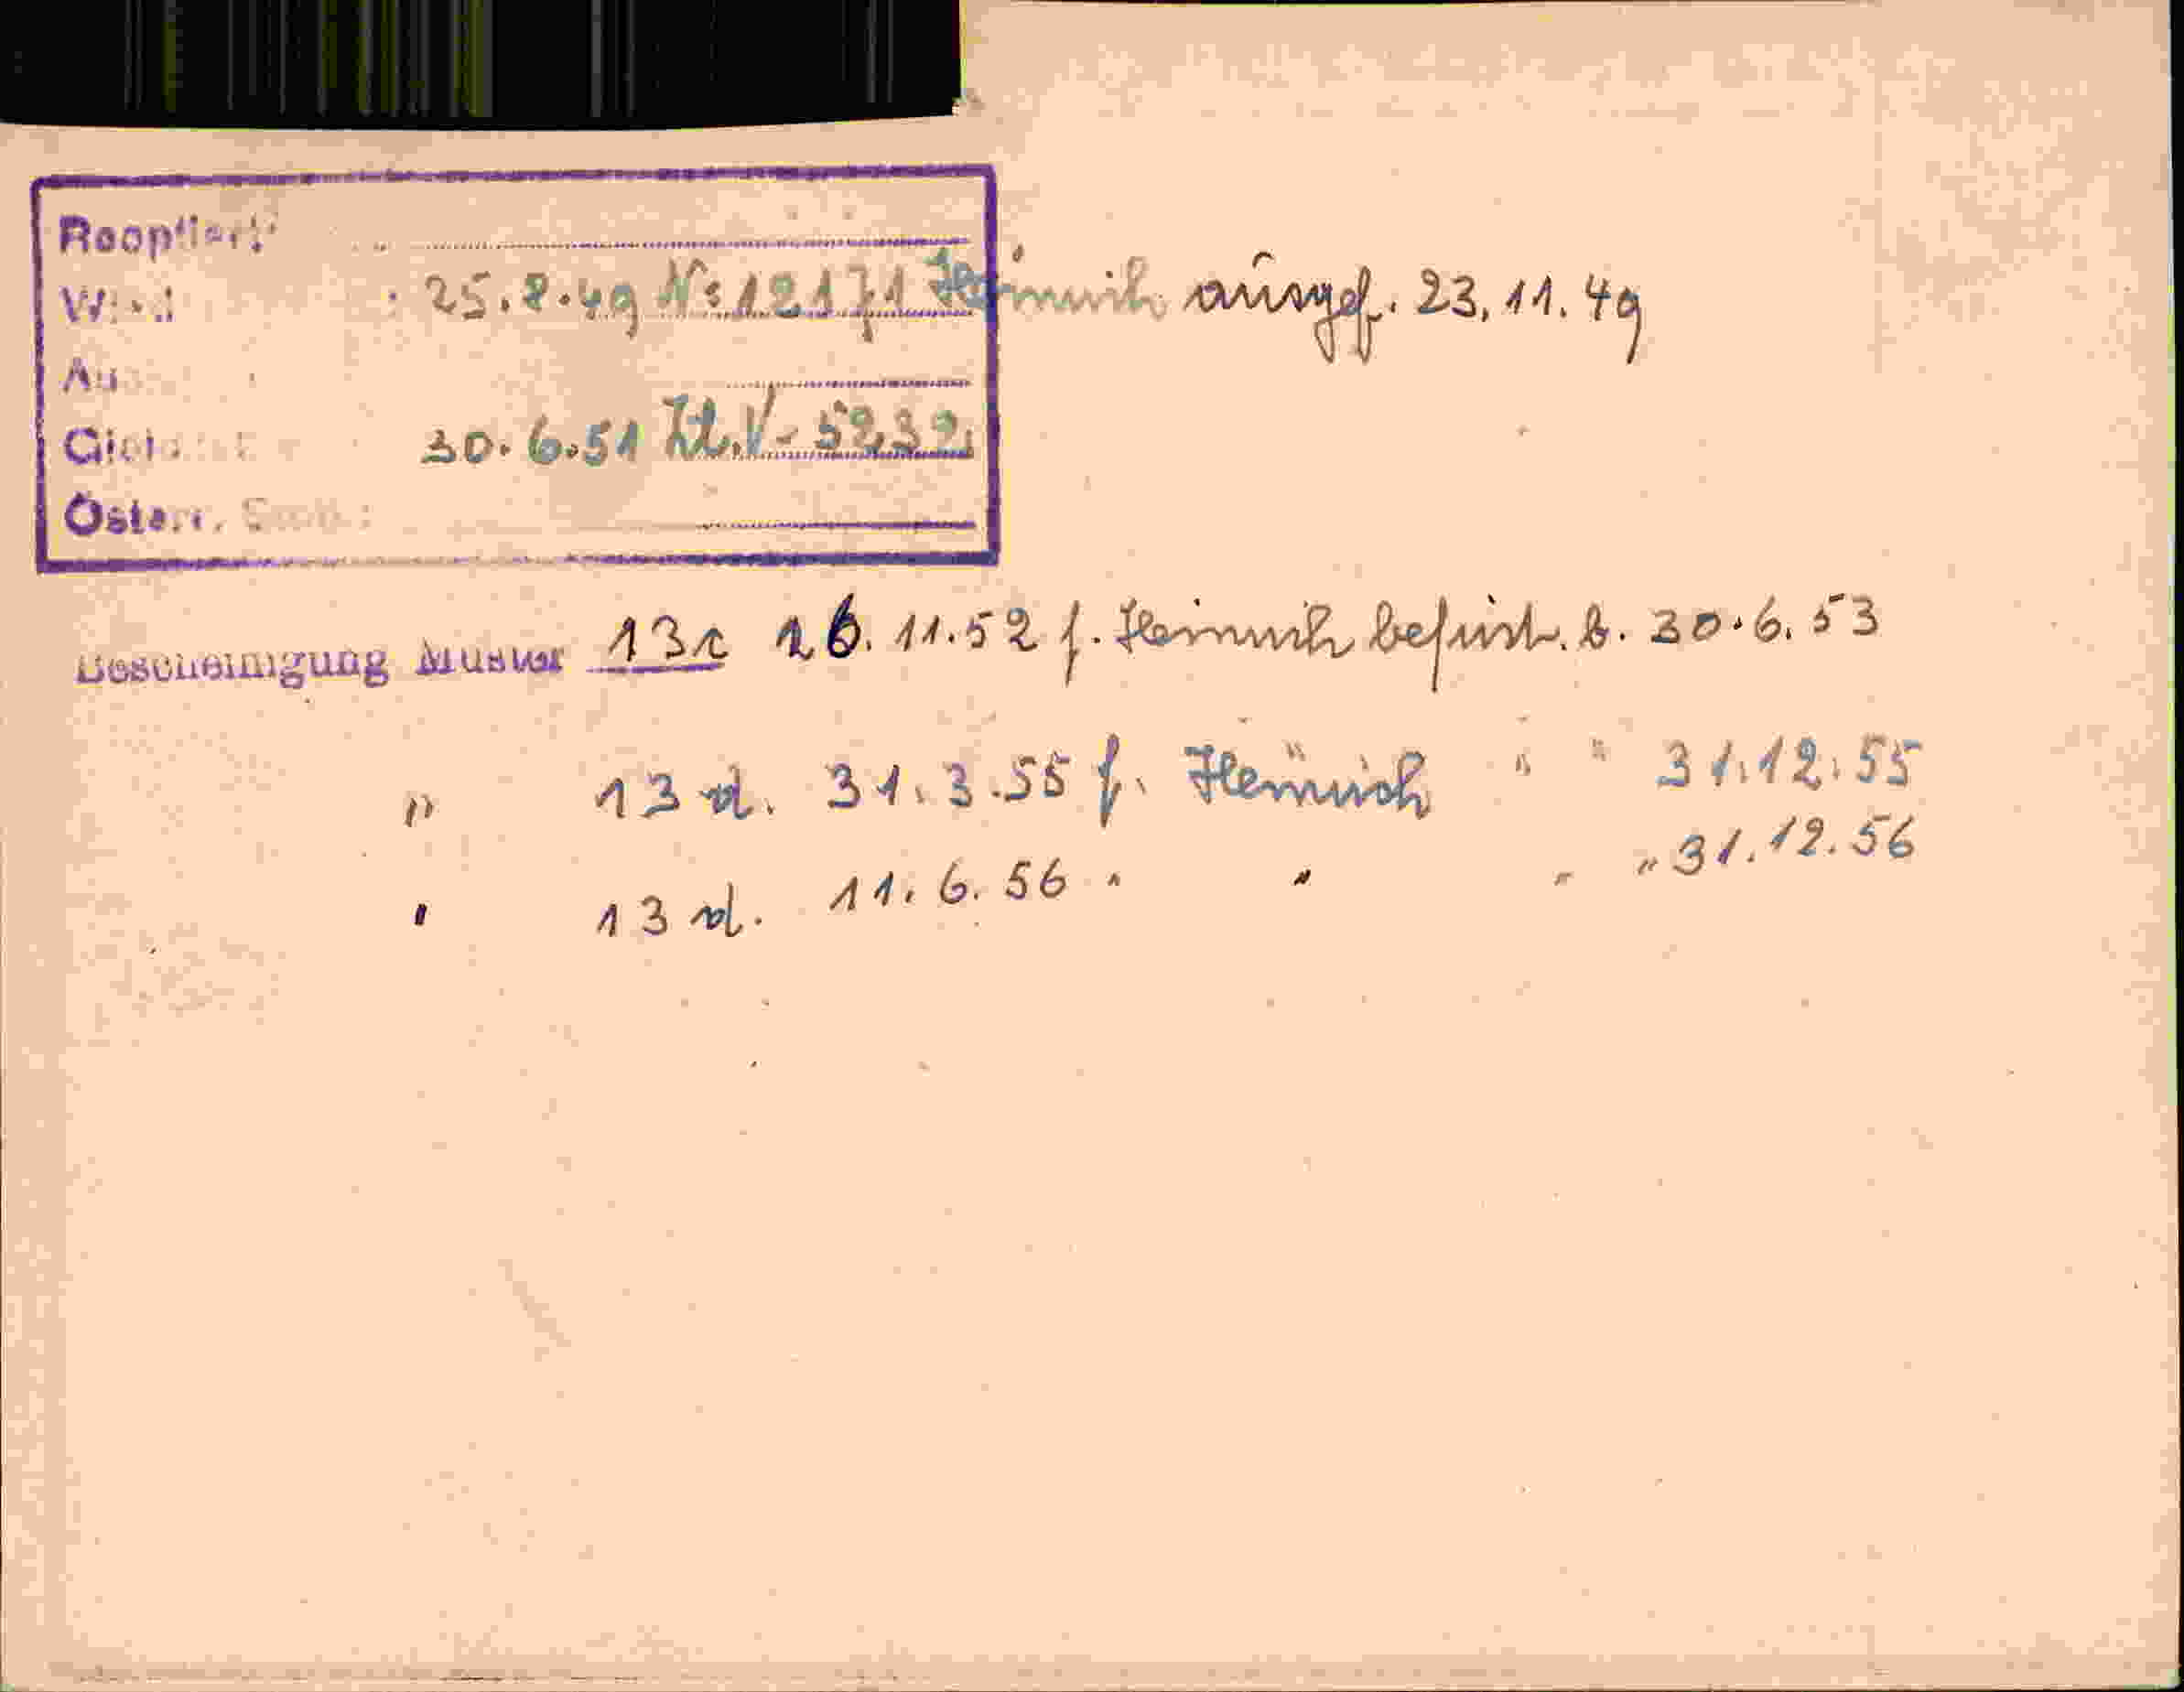 Reoptiert:
: 25.8.49 No 12171 Heinrich ausgef. 23.11.49
30.6.51 Zl. V-5232
Österr.
Bescheinigung Muster 13c 26.11.52 f. Heinrich befrist. b. 30.6.53
" 13 d. 31.3.55 f. Heinrich " " 31.12.55
" 13 d. 11.6.56 " " " " 31.12.56